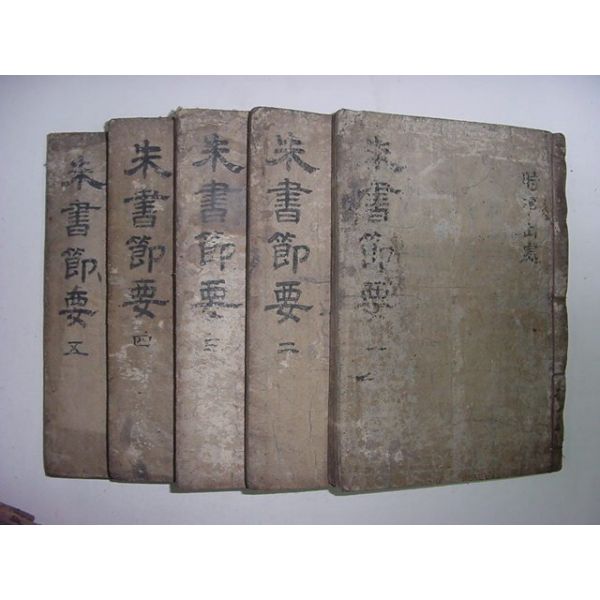 朱書節要 一
朱書節要 二
朱書節要 三
朱書節要 四
朱書節要 五